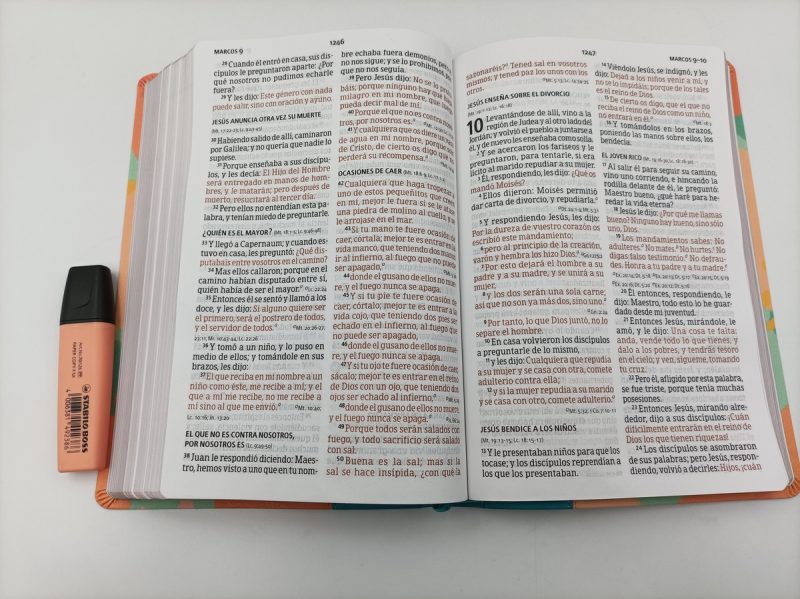 MARCOS 9
1246
29 Cuando él entró en casa, sus dis-
cípulos le preguntaron aparte: ¿Por
qué nosotros no pudimos echarle
fuera?
29 Y les dijo: Este género con nada
puede salir, sino con oración y ayuno.
JESÚS ANUNCIA OTRA VEZ SU MUERTE
(Mt. 17.22-23; Lc. 9.43-45)
30 Habiendo salido de allí, caminaron
por Galilea; y no quería que nadie lo
supiese.
31 Porque enseñaba a sus discípu-
los, y les decía: El Hijo del Hombre
será entregado en manos de hom-
bres, y le matarán; pero después de
muerto, resucitará al tercer día.
32 Pero ellos no entendían esta pa-
labra, y tenían miedo de preguntarle.
¿QUIÉN ES EL MAYOR? (Mt. 18.1-5; Lc. 9.46-48)
33 Y llegó a Capernaum; y cuando es-
tuvo en casa, les preguntó: ¿Qué dis-
putabais entre vosotros en el camino?
34 Mas ellos callaron; porque en el
camino habían disputado entre sí,
quién había de ser el mayor.
Lc. 22.24
35 Entonces él se sentó y llamó a los
doce, y les dijo: Si alguno quiere ser
el primero, será el postrero de todos,
y el servidor de todos.
36 Y tomó a un niño, y lo puso en
medio de ellos; y tomándole en sus
brazos, les dijo:
37 El que reciba en mi nombre a un
niño como éste, me recibe a mí; y el
que a mí me recibe, no me recibe a
mí sino al que me envió.
EL QUE NO ES CONTRA NOSOTROS,
POR NOSOTROS ES (Lc. 9.49-50)
38 Juan le respondió diciendo: Maes-
tro, hemos visto a uno que en tu nom-
bre echaba fuera demonios, pero
no nos sigue; y se lo prohibimos, porque
no nos seguía.
39 Pero Jesús dijo: No se lo prohi-
báis; porque ninguno hay que haga
milagro en mi nombre, que luego
pueda decir mal de mí.
40 Porque el que no es contra noso-
tros, por nosotros es.
41 Y cualquiera que os diere un vaso
de agua en mi nombre, porque sois
de Cristo, de cierto os digo que no
perderá su recompensa.
OCASIONES DE CAER (Mt. 18.6-9; Lc. 17.1-2)
42 Cualquiera que haga tropezar a
uno de estos pequeñitos que creen
en mí, mejor le fuera si se le atase
una piedra de molino al cuello, y se
le arrojase en el mar.
43 Si tu mano te fuere ocasión de
caer, córtala; mejor te es entrar en la
vida manco, que teniendo dos manos
ir al infierno, al fuego que no puede
ser apagado,
44 donde el gusano de ellos no mue-
re, y el fuego nunca se apaga.
45 Y si tu pie te fuere ocasión de
caer, córtalo; mejor te es entrar a la
vida cojo, que teniendo dos pies ser
echado en el infierno, al fuego que
no puede ser apagado,
46 donde el gusano de ellos no mue-
re, y el fuego nunca se apaga.
47 Y si tu ojo te fuere ocasión de caer,
sácalo; mejor te es entrar en el reino
de Dios con un ojo, que teniendo dos
ojos ser echado al infierno,
48 donde el gusano de ellos no muere,
y el fuego nunca se apaga.
49 Porque todos serán salados con
fuego, y todo sacrificio será salado
con sal.
50 Buena es la sal; mas si la sal
se hace insípida, ¿con qué la
1247
MARCOS 9-10
sazonaréis? Tened sal en vosotros
mismos; y tened paz los unos con los
otros.
JESÚS ENSEÑA SOBRE EL DIVORCIO
(Mt. 19.1-12; Lc. 16.18)
10 Levantándose de allí, vino a la
región de Judea y al otro lado del
Jordán; y volvió el pueblo a juntarse a
él, y de nuevo les enseñaba como solía.
2 Y se acercaron los fariseos y le
preguntaron, para tentarle, si era
lícito al marido repudiar a su mujer.
3 Él, respondiendo, les dijo: ¿Qué os
mandó Moisés?
4 Ellos dijeron: Moisés permitió
dar carta de divorcio, y repudiarla.
5 Y respondiendo Jesús, les dijo:
Por la dureza de vuestro corazón os
escribió este mandamiento;
6 pero al principio de la creación,
varón y hembra los hizo Dios.
7 Por esto dejará el hombre a su
padre y a su madre, y se unirá a su
mujer,
8 y los dos serán una sola carne;
así que no son ya más dos, sino uno.
9 Por tanto, lo que Dios juntó, no lo
separe el hombre.
10 En casa volvieron los discípulos
a preguntarle de lo mismo,
11 y les dijo: Cualquiera que repudia
a su mujer y se casa con otra, comete
adulterio contra ella;
12 y si la mujer repudia a su marido
y se casa con otro, comete adulterio.
JESÚS BENDICE A LOS NIÑOS
(Mt. 19.13-15; Lc. 18.15-17)
13 Y le presentaban niños para que los
tocase; y los discípulos reprendían a
los que los presentaban.
14 Viéndolo Jesús, se indignó, y les
dijo: Dejad a los niños venir a mí, y
no se lo impidáis; porque de los tales
es el reino de Dios.
15 De cierto os digo, que el que no
reciba el reino de Dios como un niño,
no entrará en él.
16 Y tomándolos en los brazos,
poniendo las manos sobre ellos, los
bendecía.
EL JOVEN RICO
17 Al salir él para seguir su camino,
vino uno corriendo, e hincando la
rodilla delante de él, le preguntó:
Maestro bueno, ¿qué haré para he-
redar la vida eterna?
18 Jesús le dijo: ¿Por qué me llamas
bueno? Ninguno hay bueno, sino sólo
uno, Dios.
19 Los mandamientos sabes: No
adulteres. No mates. No hurtes. No
digas falso testimonio. No defrau-
des. Honra a tu padre y a tu madre.
20 Él entonces, respondiendo, le
dijo: Maestro, todo esto lo he guar-
dado desde mi juventud.
21 Entonces Jesús, mirándole, le
amó, y le dijo: Una cosa te falta:
anda, vende todo lo que tienes, y
dalo a los pobres, y tendrás tesoro
en el cielo; y ven, sígueme, tomando
tu cruz.
22 Pero él, afligido por esta palabra,
se fue triste, porque tenía muchas
posesiones.
23 Entonces Jesús, mirando alre-
dedor, dijo a sus discípulos: ¡Cuán
difícilmente entrarán en el reino de
Dios los que tienen riquezas!
24 Los discípulos se asombraron
de sus palabras; pero Jesús, respon-
diendo, volvió a decirles: Hijos, ¡cuán
STABILO BOSS